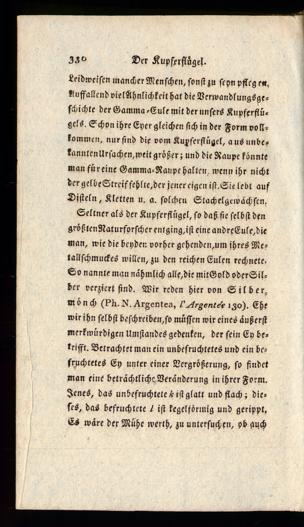 330 Der Kupferflügel.
Leidwesen mancher Menschen, sonst zu seyn pflegen.
Auffallend viel Ähnlichkeit hat die Verwandlungsge-
schichte der Gamma-Eule mit der unsers Kupferflü-
gels. Schon ihre Eyer gleichen sich in der Form voll-
kommen, nur sind die vom Kupferflügel, aus unbe-
kannten Ursachen, weit größer; und die Raupe könnte
man für eine Gamma-Raupe halten, wenn ihr nicht
der gelbe Streif fehlte, der jener eigen ist. Sie lebt auf
Disteln, Kletten u. a. solchen Stachelgewächsen.
Seltner als der Kupferflügel, so daß sie selbst den
größten Naturforscher entging, ist eine andre Eule, die
man, wie die beyden vorher gehenden, um ihres Me-
tallschmuckes willen, zu den reichen Eulen rechnete.
So nannte man nähmlich alle, die mit Gold oder Sil-
ber verziert sind. Wir reden hier von Silber-
mönch (Ph. N. Argentea, l'Argentée 130). Ehe
wir ihn selbst beschreiben, so müssen wir eines äußerst
merkwürdigen Umstandes gedenken, der sein Ey be-
trifft. Betrachtet man ein unbefruchtetes und ein be-
fruchtetes Ey unter einer Vergrößerung, so findet
man eine beträchtliche Veränderung in ihrer Form.
Jenes, das unbefruchtete k ist glatt und flach; die-
ses, das befruchtete l ist kegelförmig und gerippt.
Es wäre der Mühe werth, zu untersuchen, ob auch